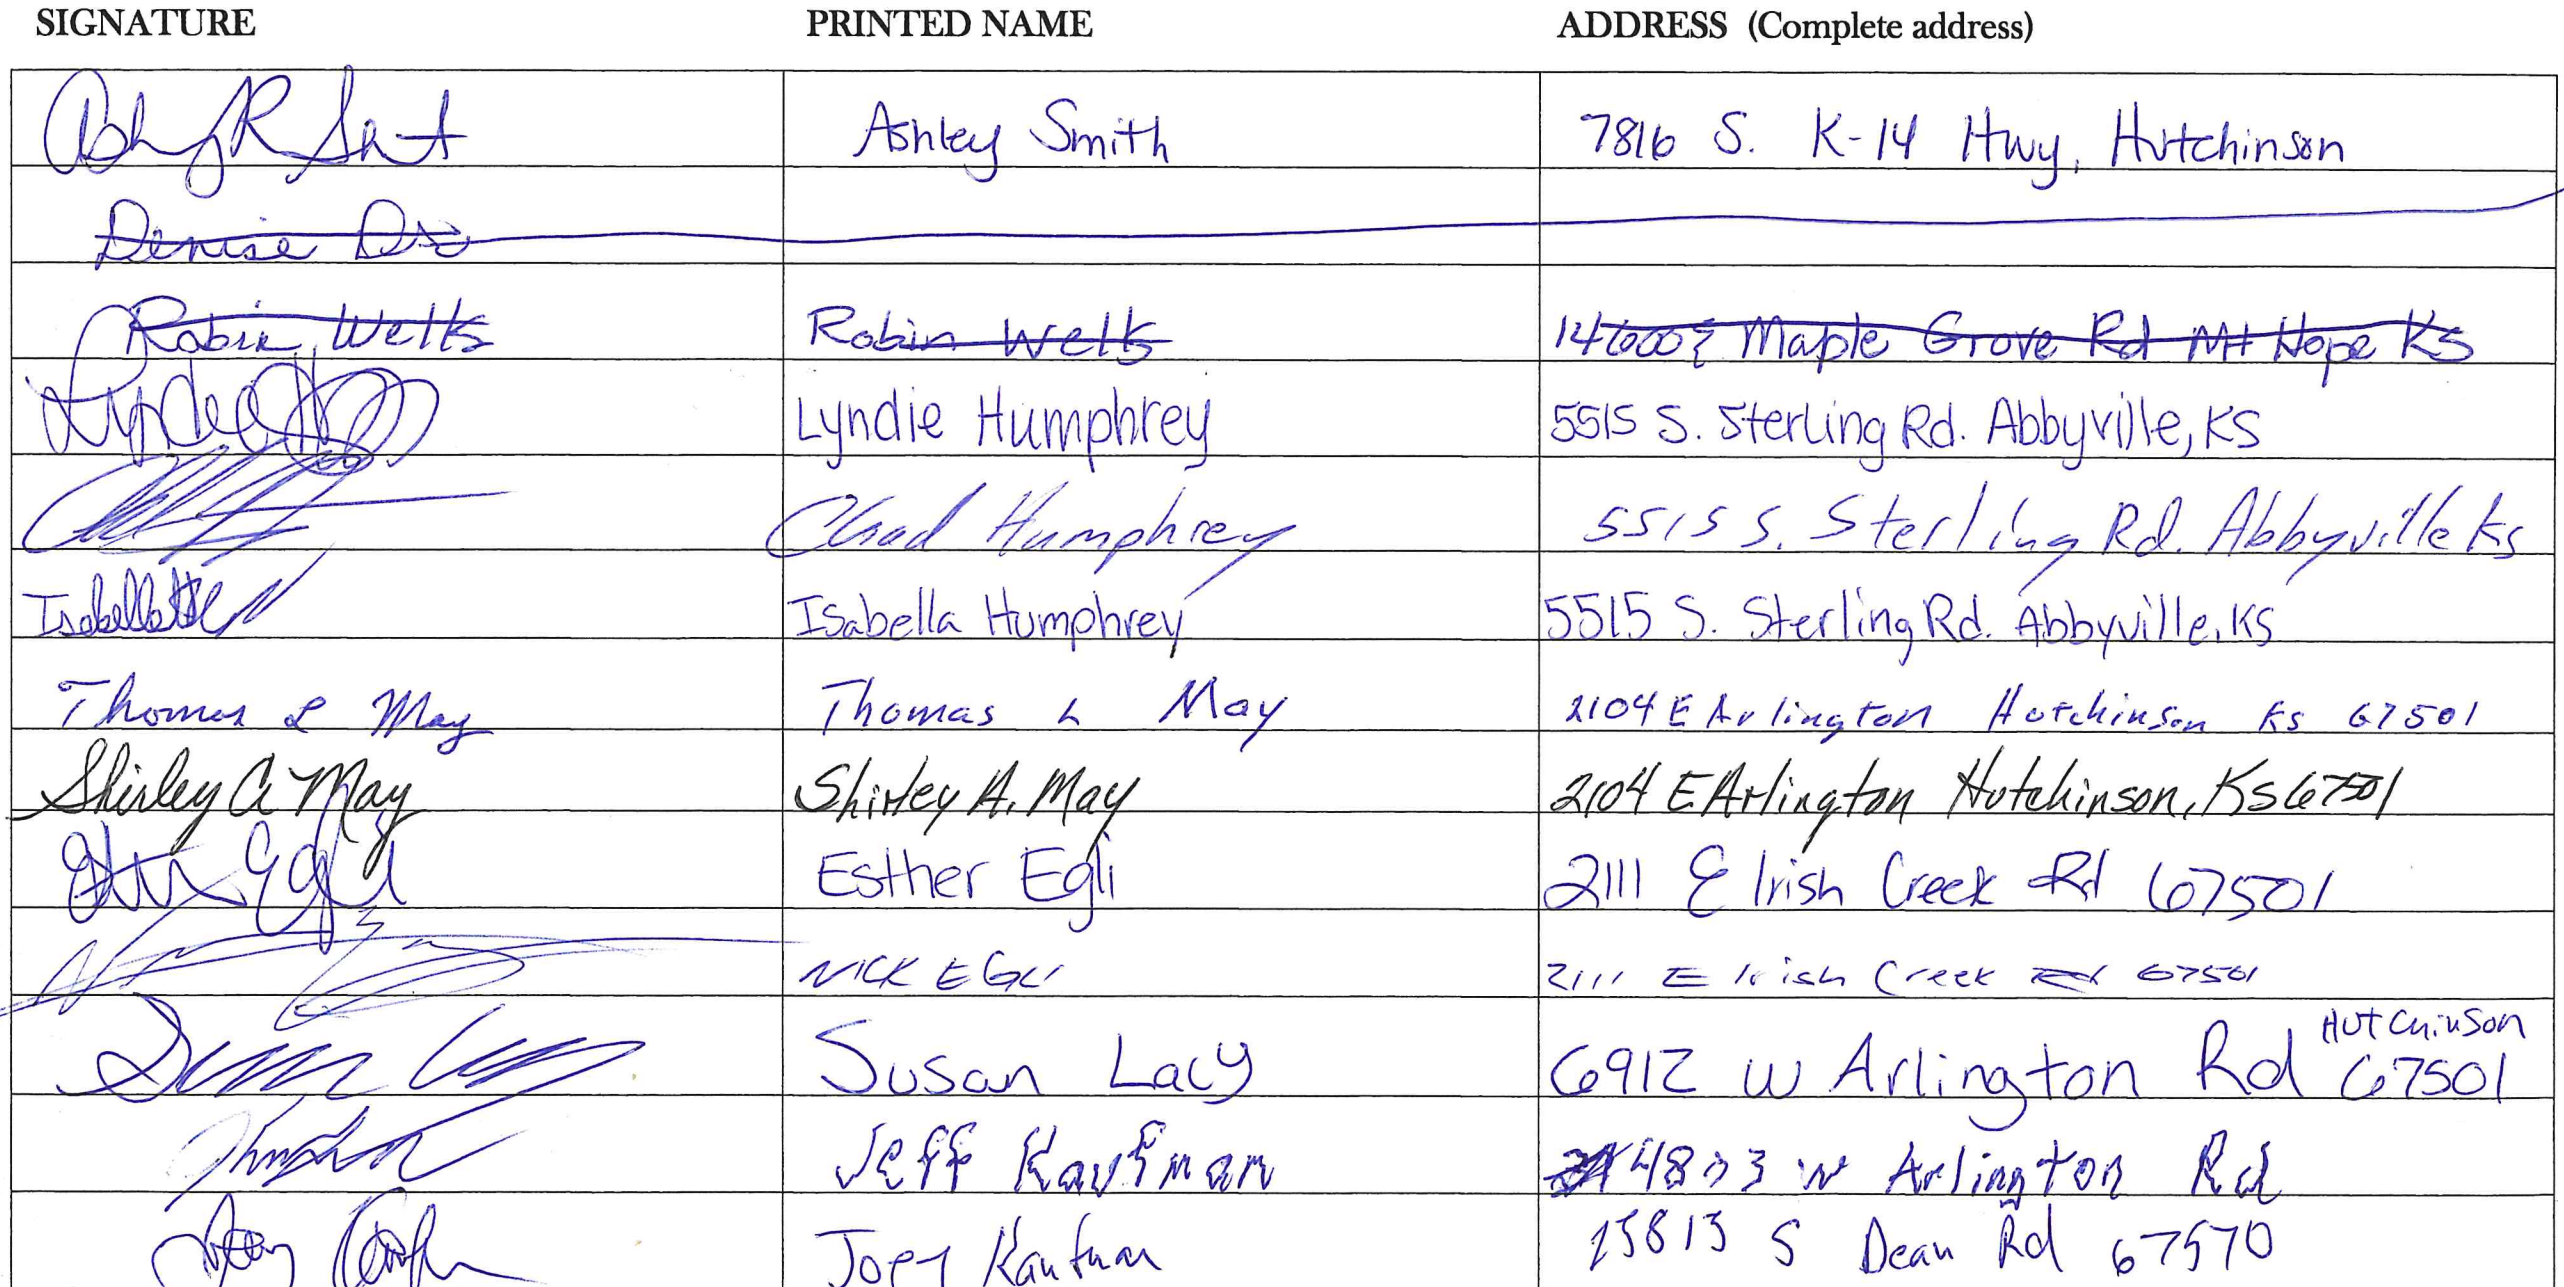 SIGNATURE PRINTED NAME ADDRESS (Complete address)
Ashley R Smith Ashley Smith 7816 S. K-14 Hwy, Hutchinson
Denise
Robin Wells Robin Wells 14600 E Maple Grove Rd Mt Hope Ks
Lyndie Lyndie Humphrey 5515 S. Sterling Rd. Abbyville, KS
Chad Humphrey 5515 S. Sterling Rd. Abbyville Ks
Isabella Isabella Humphrey 5515 S. Sterling Rd. Abbyville, KS
Thomas L May Thomas L May 2104 E Arlington Hutchinson Ks 67501
Shirley A May Shirley A. May 2104 E Arlington Hutchinson, Ks 67501
Esther Egli Esther Egli 2111 E Irish Creek Rd 67501
NICK EGLI 2111 E Irish Creek Rd 67501
Susan Lacy Susan Lacy 6912 W Arlington Rd Hutchinson 67501
Jeff Kaufman 4803 W Arlington Rd
Joey Kaufman Joey Kaufman 15813 S Dean Rd 67570